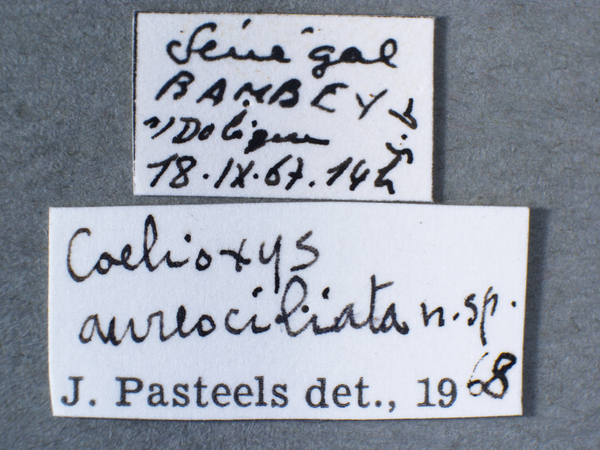 Sénégal
BAMBEY
s/Dolique
18.IX.67.14h
Coelioxys
aureociliata n.sp.
J. Pasteels det., 1968